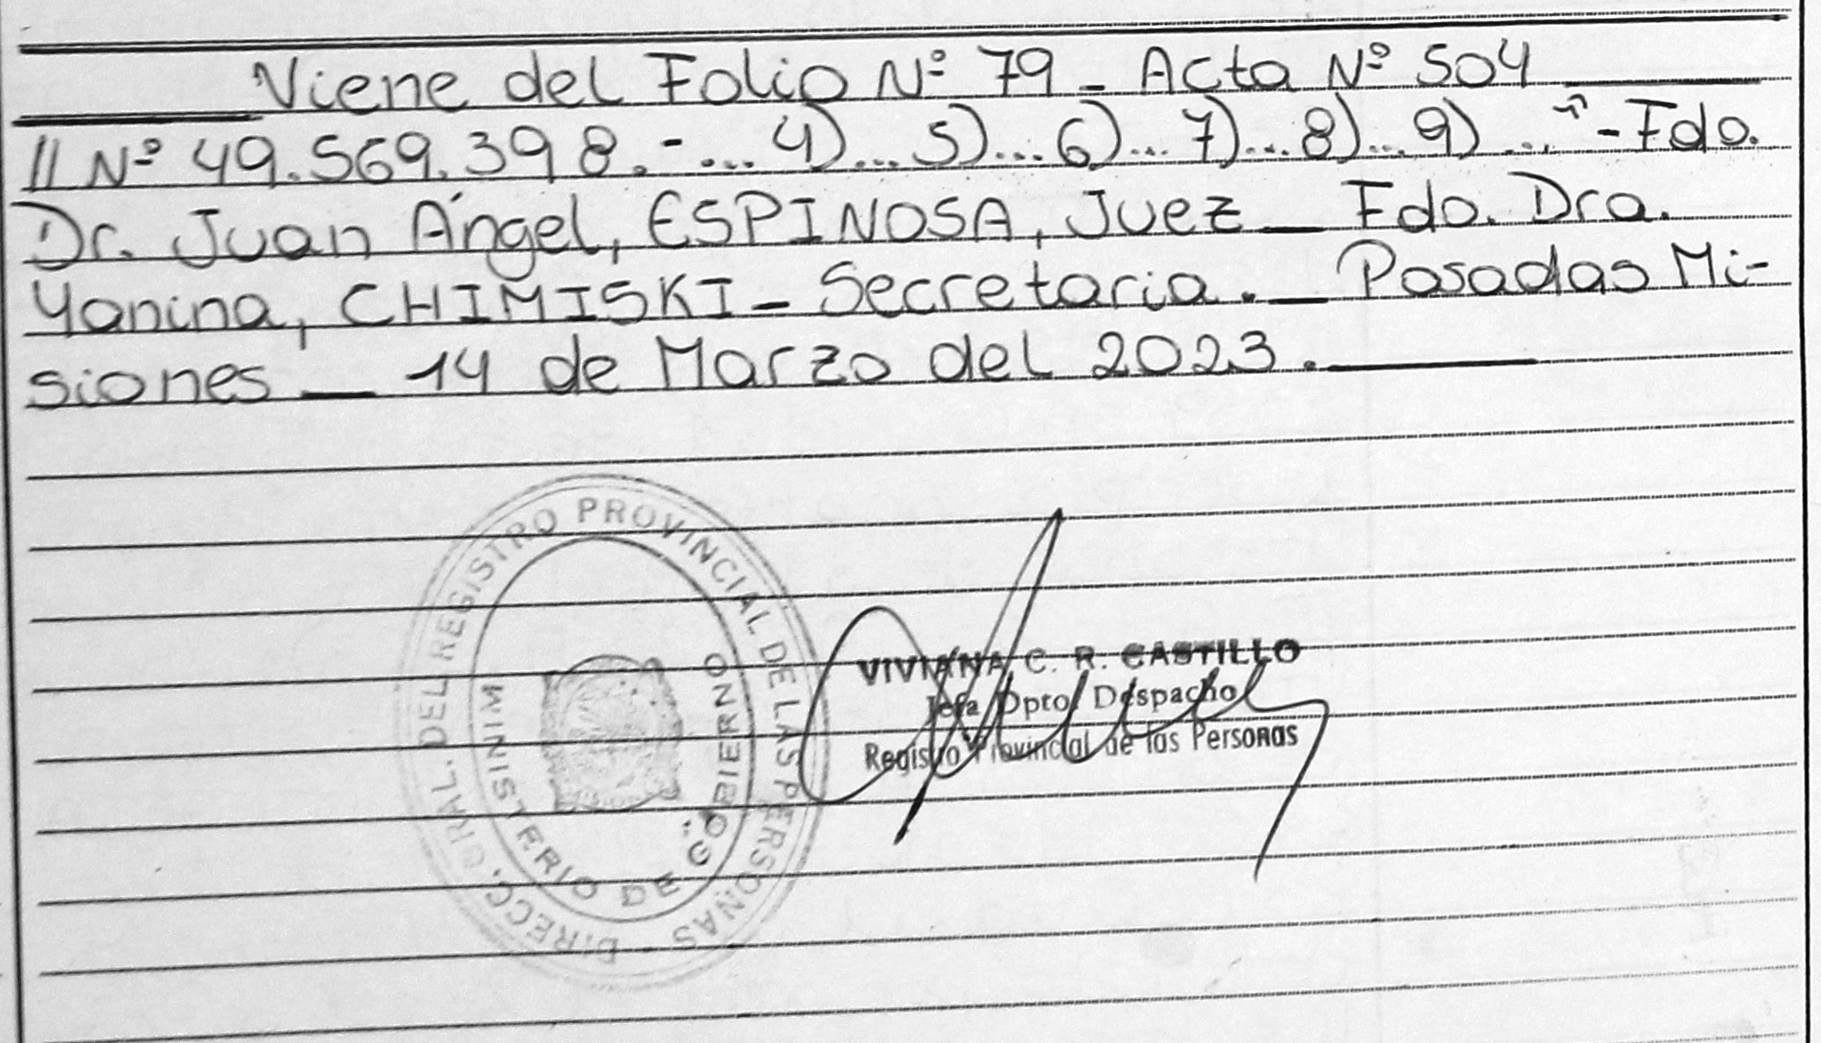 Viene del Folio Nº 79 - Acta Nº 504
// Nº 49.569.398.- ... 4)... 5)... 6)... 7)... 8)... 9) ... " - Fdo.
Dr. Juan Ángel, ESPINOSA, Juez _ Fdo. Dra.
Yanina, CHIMISKI - Secretaria. _ Posadas Mi-
siones _ 14 de Marzo del 2023.
DIRECC. GRAL. DEL REGISTRO PROVINCIAL DE LAS PERSONAS
MINISTERIO DE GOBIERNO
VIVIANA C. R. CASTILLO
Jefa Dpto. Despacho
Registro Provincial de las Personas